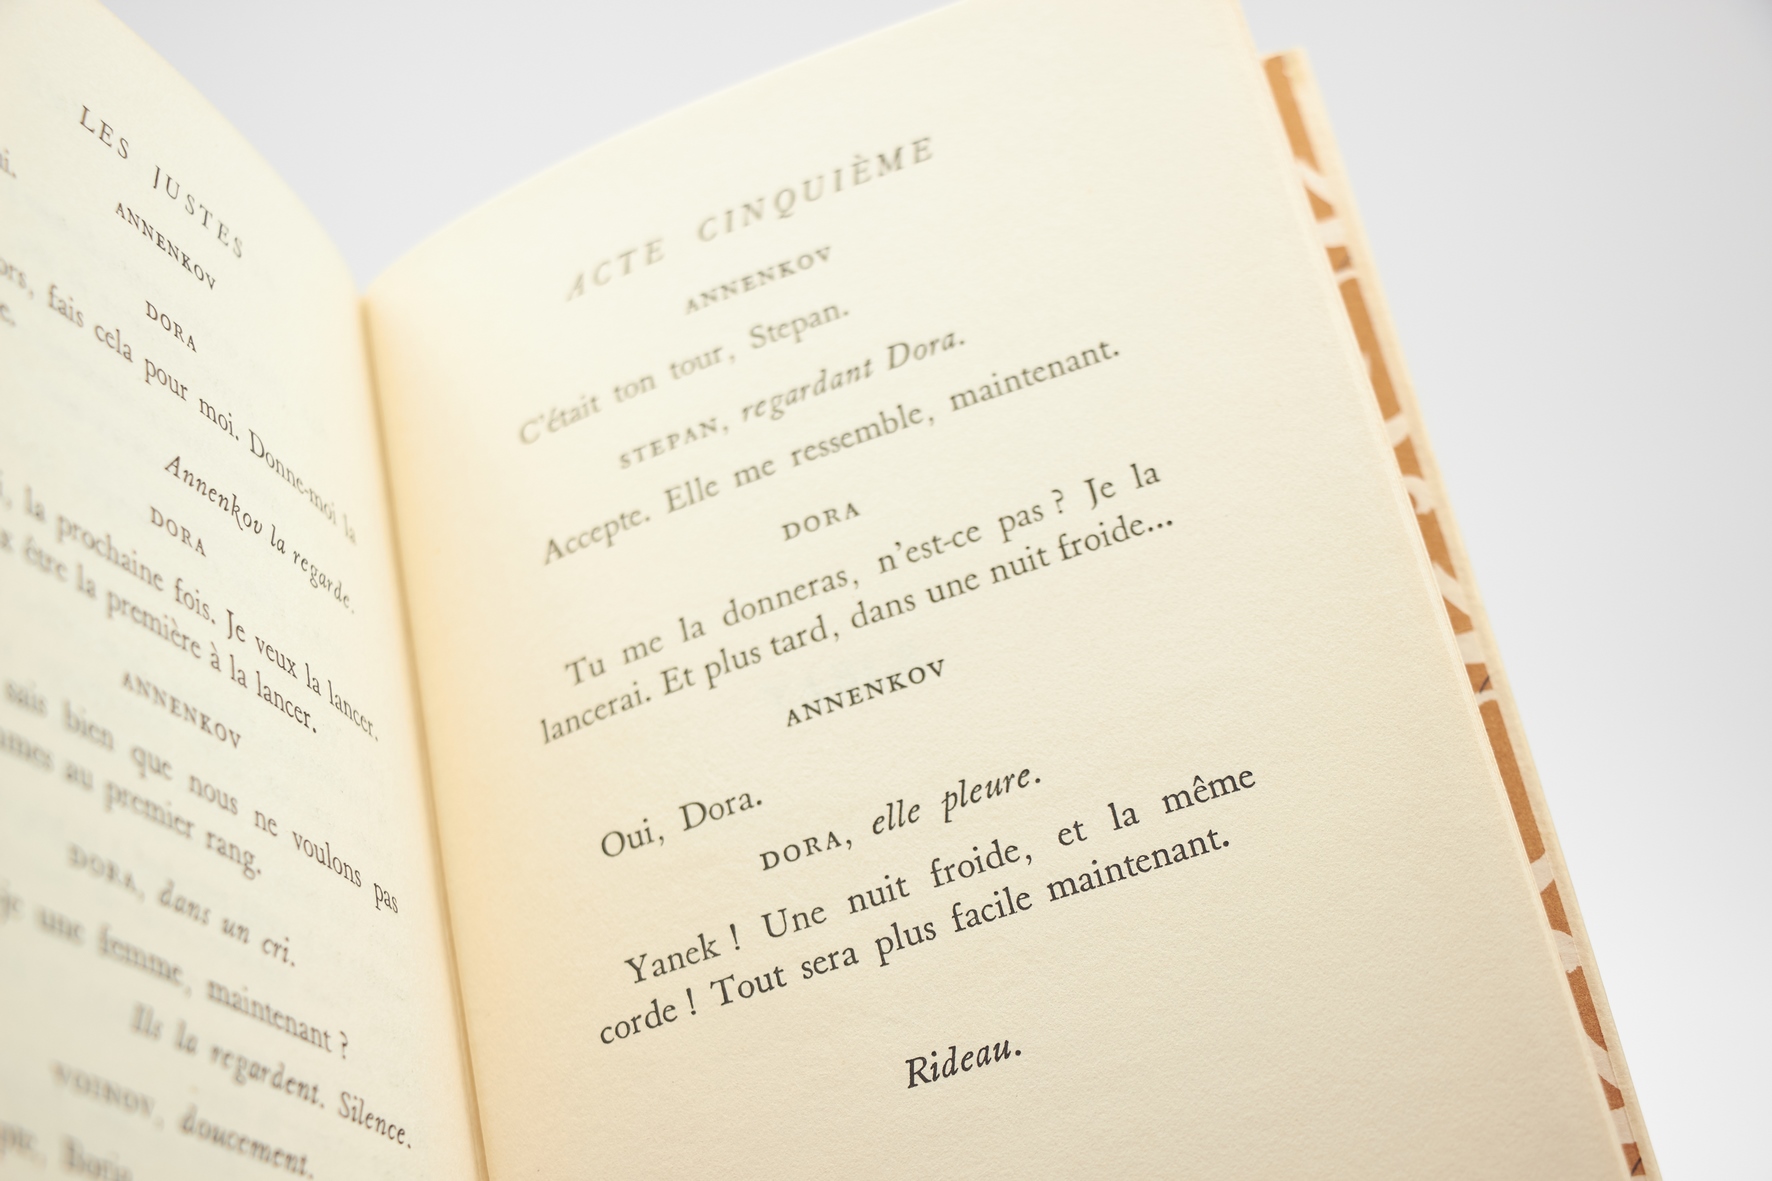 LES JUSTES
ANNENKOV
DORA
fais cela pour moi. Donne-moi la
Annenkov la regarde.
DORA
la prochaine fois. Je veux la lancer.
être la première à la lancer.
ANNENKOV
sais bien que nous ne voulons pas
au premier rang.
DORA, dans un cri.
une femme, maintenant ?
Ils la regardent. Silence.
VOINOV, doucement.
ACTE CINQUIÈME
ANNENKOV
C'était ton tour, Stepan.
STEPAN, regardant Dora.
Accepte. Elle me ressemble, maintenant.
DORA
Tu me la donneras, n'est-ce pas ? Je la
lancerai. Et plus tard, dans une nuit froide...
ANNENKOV
Oui, Dora.
DORA, elle pleure.
Yanek ! Une nuit froide, et la même
corde ! Tout sera plus facile maintenant.
Rideau.